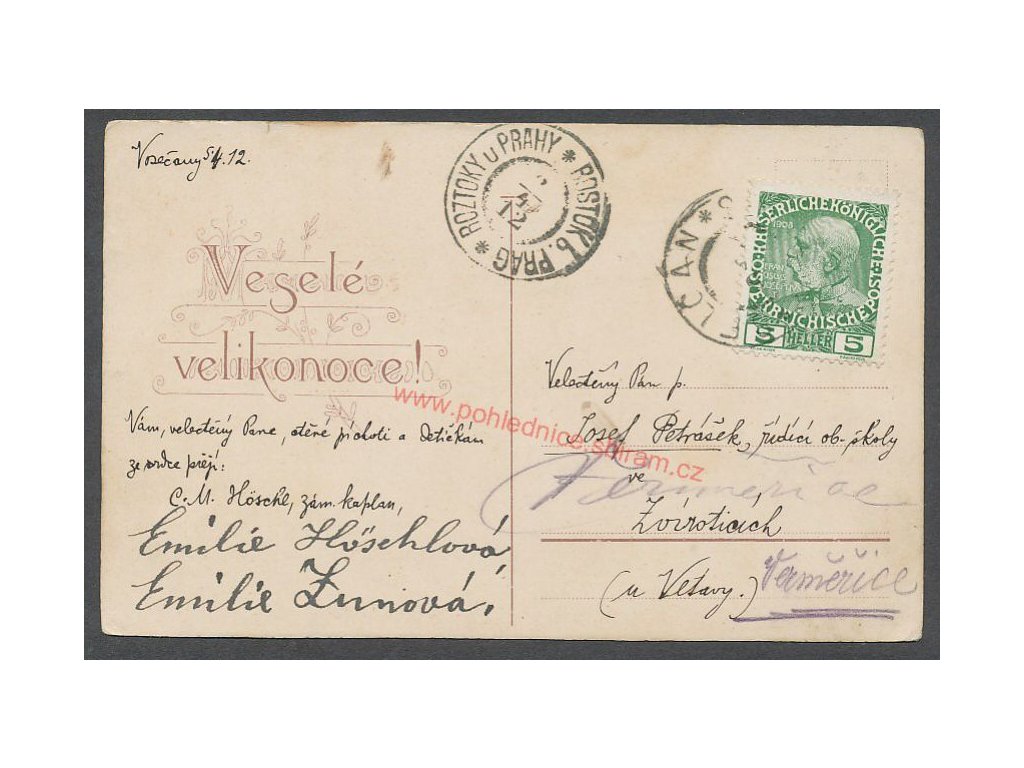 Vosečany 5/4.12.
ROZTOKY u PRAHY * ROSTOK b. PRAG *
12
KAISERLICHE KÖNIGLICHE ÖSTERREICHISCHE POST
1908
5 HELLER 5
Veselé
velikonoce!
www.pohlednice-sbiram.cz
Vám, velectěný Pane, ctěné p. choti a dětičkám
ze srdce přejí:
C. M. Höschl, zám. kaplan,
Emilie Höschlová,
Emilie Zunová.
Velectěný Pán p.
Josef Petrášek, řídící ob. školy
ve
Zvíroticích
(u Vltavy.)